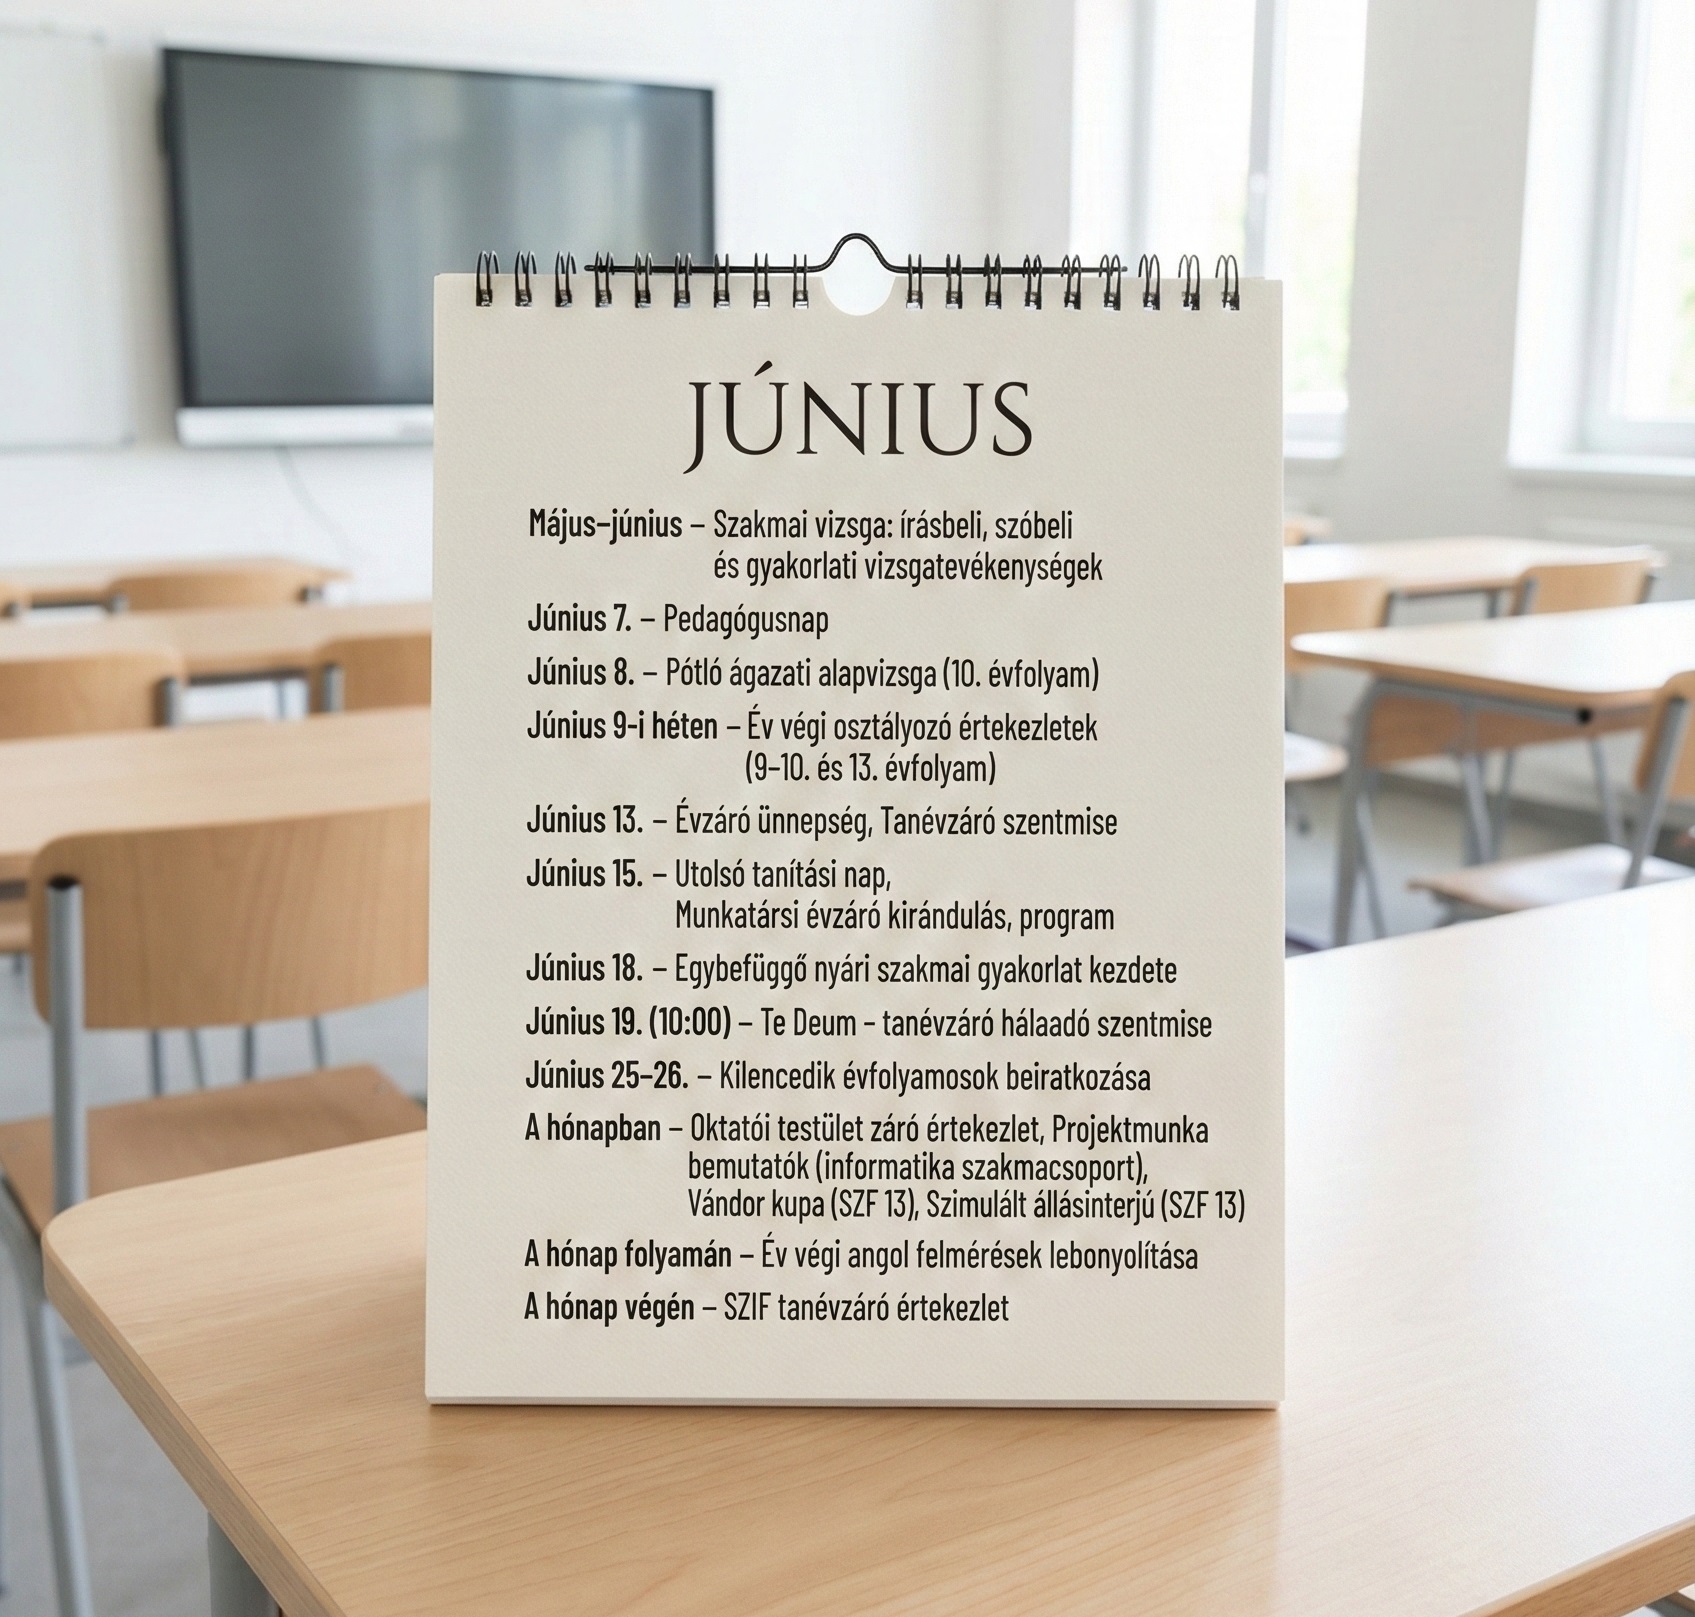 JÚNIUS
Május–június – Szakmai vizsga: írásbeli, szóbeli
és gyakorlati vizsgatevékenységek
Június 7. – Pedagógusnap
Június 8. – Pótló ágazati alapvizsga (10. évfolyam)
Június 9-i héten – Év végi osztályozó értekezletek
(9–10. és 13. évfolyam)
Június 13. – Évzáró ünnepség, Tanévzáró szentmise
Június 15. – Utolsó tanítási nap,
Munkatársi évzáró kirándulás, program
Június 18. – Egybefüggő nyári szakmai gyakorlat kezdete
Június 19. (10:00) – Te Deum – tanévzáró hálaadó szentmise
Június 25–26. – Kilencedik évfolyamosok beiratkozása
A hónapban – Oktatói testület záró értekezlet, Projektmunka
bemutatók (informatika szakmacsoport),
Vándor kupa (SZF 13), Szimulált állásinterjú (SZF 13)
A hónap folyamán – Év végi angol felmérések lebonyolítása
A hónap végén – SZIF tanévzáró értekezlet